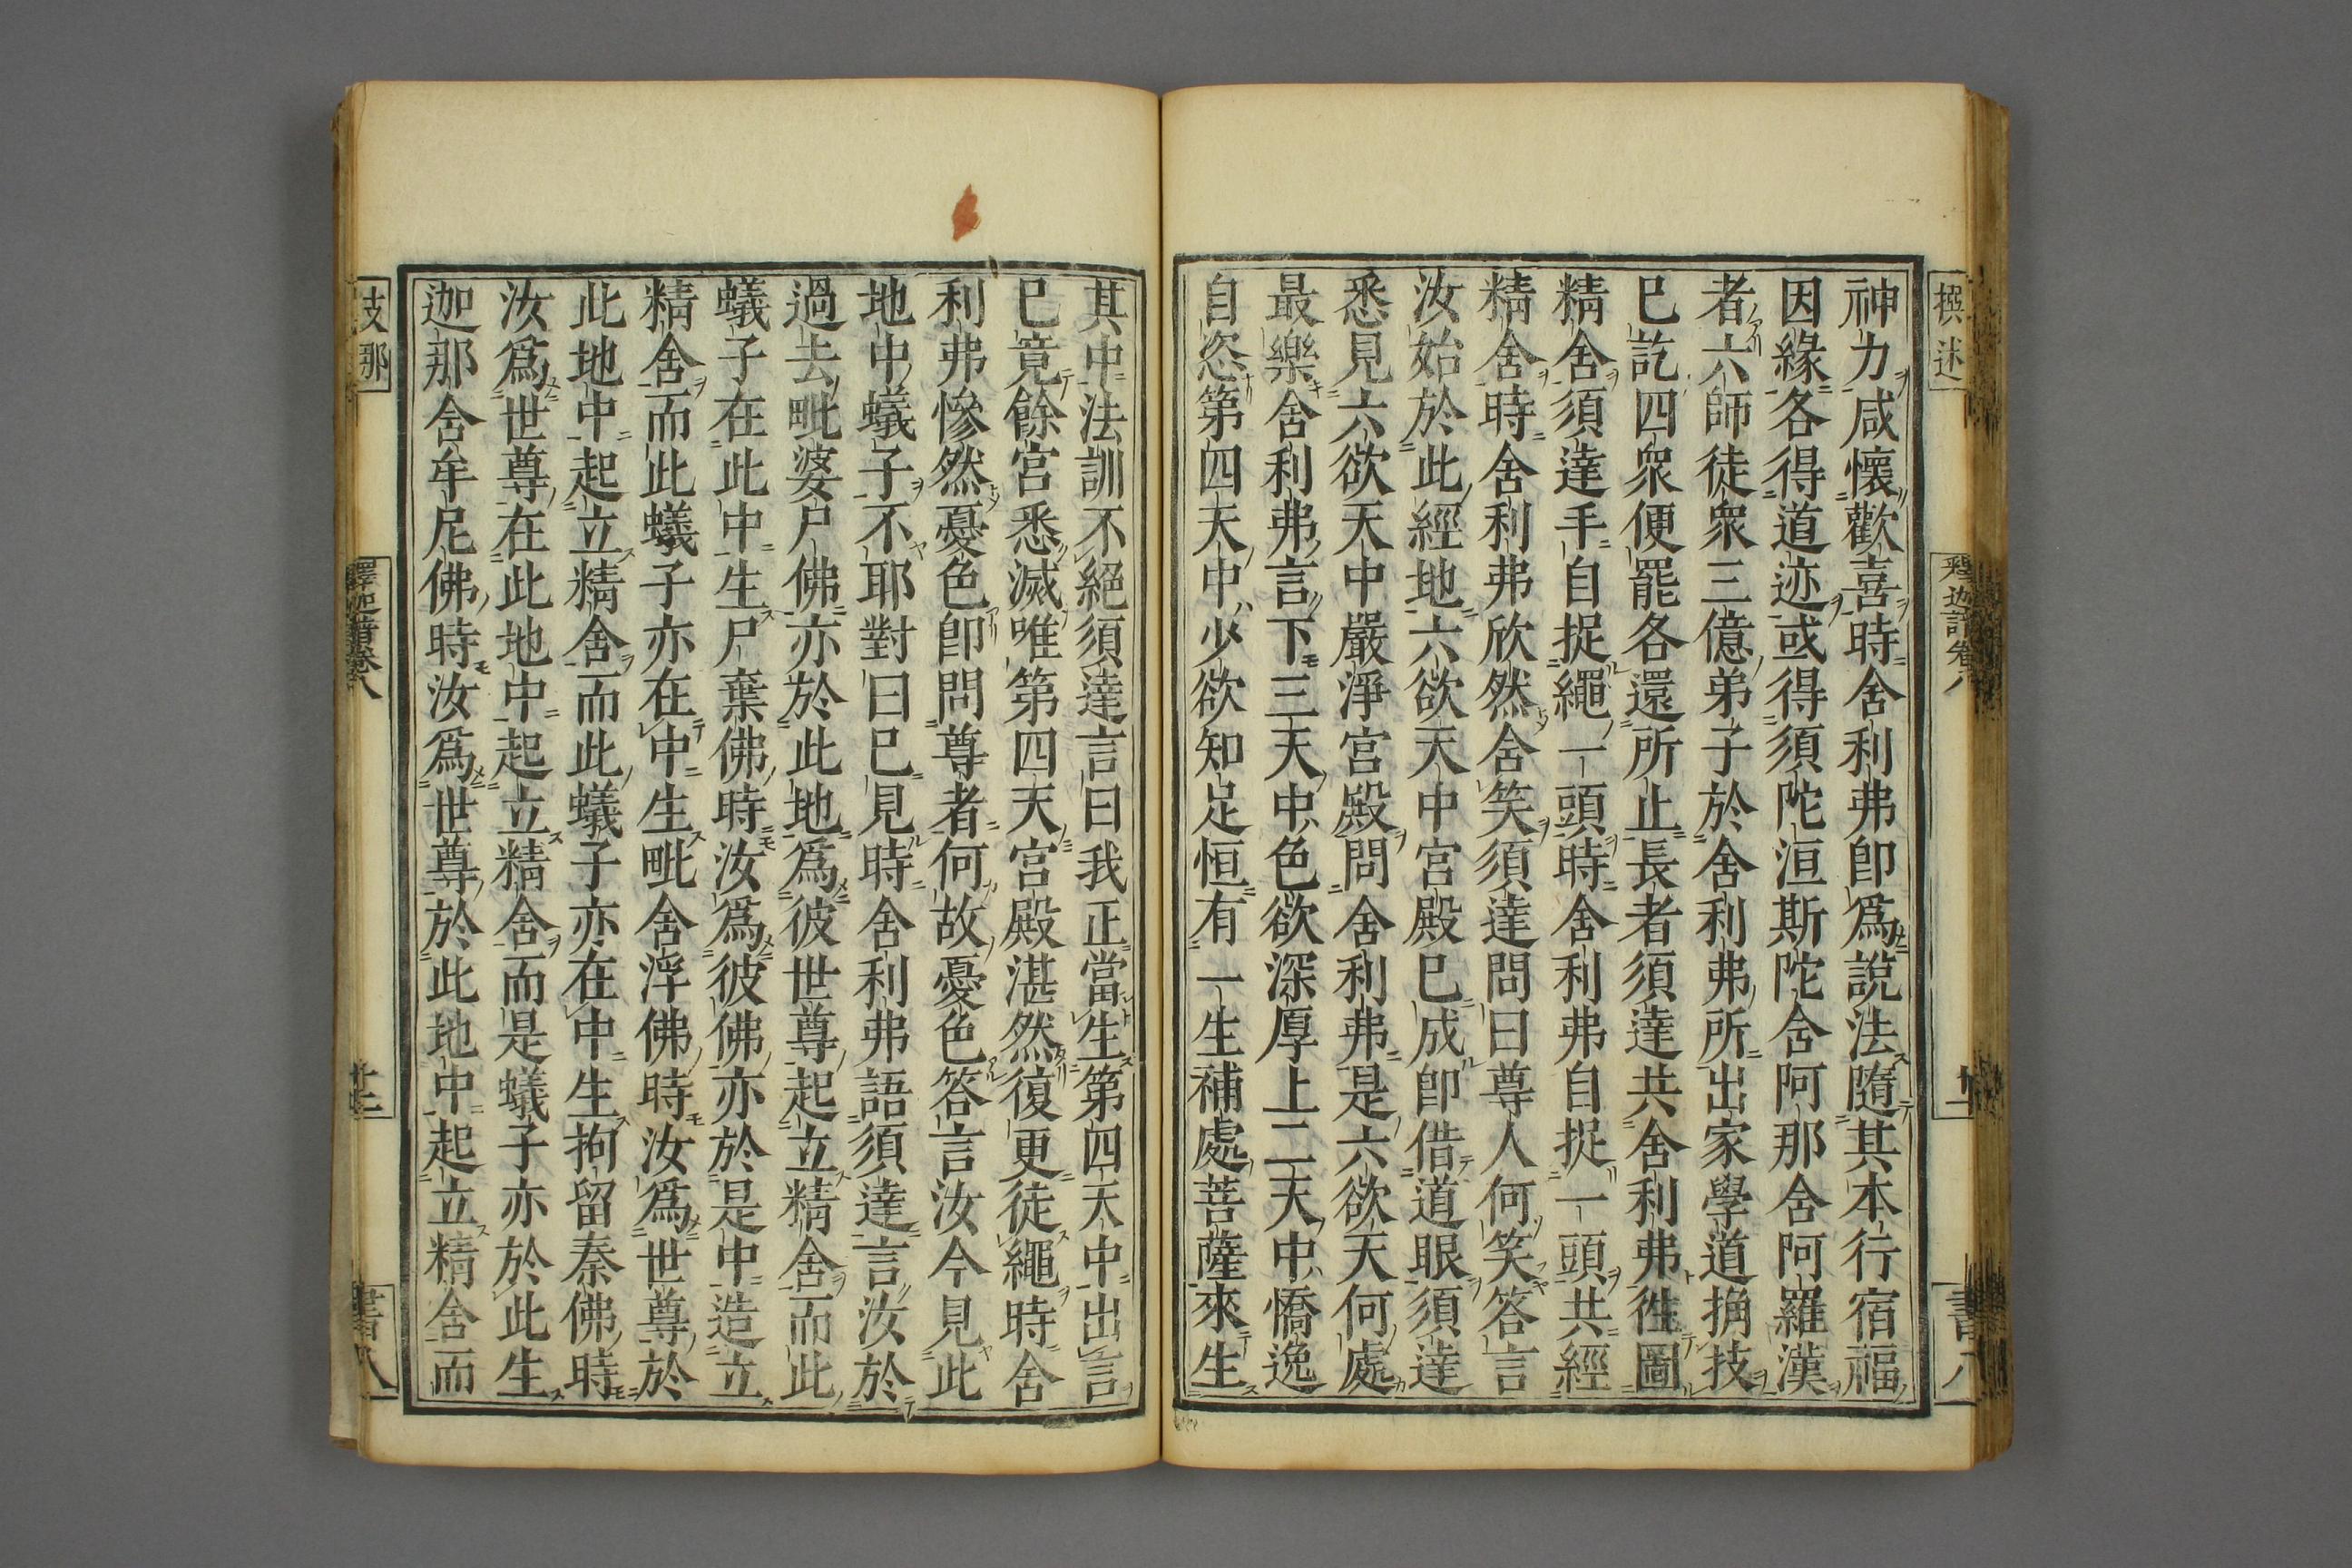 撰述
釋迦譜卷八
書八
神力咸懷歡喜時舍利弗卽爲說法隨其本行宿福
因緣各得道迹或得須陀洹斯陀舍阿那舍阿羅漢
者六師徒衆三億弟子於舍利弗所出家學道捔技
已訖四衆便罷各還所止長者須達共舍利弗徃圖
精舍須達手自捉繩一頭時舍利弗自捉一頭共經
精舍時舍利弗欣然舍笑須達問曰尊人何笑答言
汝始於此經地六欲天中宮殿已成卽借道眼須達
悉見六欲天中嚴淨宮殿問舍利弗是六欲天何處
最樂舍利弗言下三天中色欲深厚上二天中憍逸
自恣第四天中少欲知足恒有一生補處菩薩來生
其中法訓不絕須達言曰我正當生第四天中出言
已竟餘宮悉滅唯第四天宮殿湛然復更徒繩時舍
利弗慘然憂色卽問尊者何故憂色答言汝今見此
地中蟻子不耶對曰已見時舍利弗語須達言汝於
過去毗婆尸佛亦於此地爲彼世尊起立精舍而此
蟻子在此中生尸棄佛時汝爲彼佛亦於是中造立
精舍而此蟻子亦在中生毗舍浮佛時汝爲世尊於
此地中起立精舍而此蟻子亦在中生拘留秦佛時
汝爲世尊在此地中起立精舍而是蟻子亦於此生
迦那舍牟尼佛時汝爲世尊於此地中起立精舍而
支那
釋迦譜卷八
書八